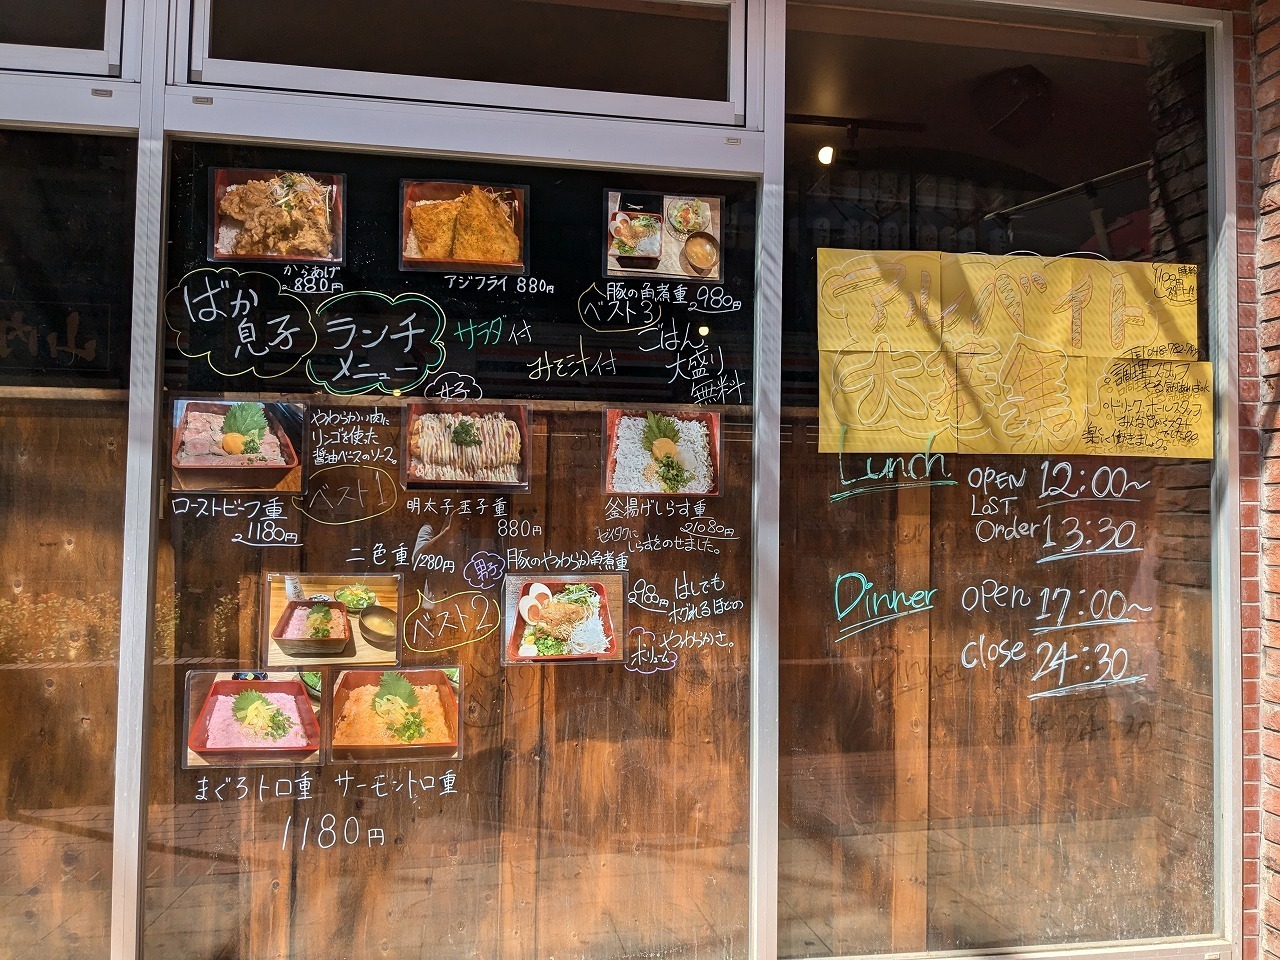 からあげ
880円
アジフライ 880円
豚の角煮重 980円
ベスト3
ばか
息子
ランチ
メニュー
サラダ付
みそ汁付
ごはん
大盛り
無料
女子
やわらかい肉に
リンゴを使った
醤油ベースのソース。
ベスト1
ローストビーフ重
1180円
明太子玉子重
880円
釜揚げしらす重
1080円
ゼイタクに
しらすをのせました。
二色重 1280円
男子
豚のやわらか角煮重
ベスト2
980円
はしでも
ホグれるほどの
やわらかさ。
ボリューム
まぐろトロ重 サーモントロ重
1180円
アルバイト
大募集
調理スタッフ
ドリンク、ホールスタッフ
Lunch
OPEN 12:00~
LaST
Order 13:30
Dinner
OPen 17:00~
Close 24:30
山内